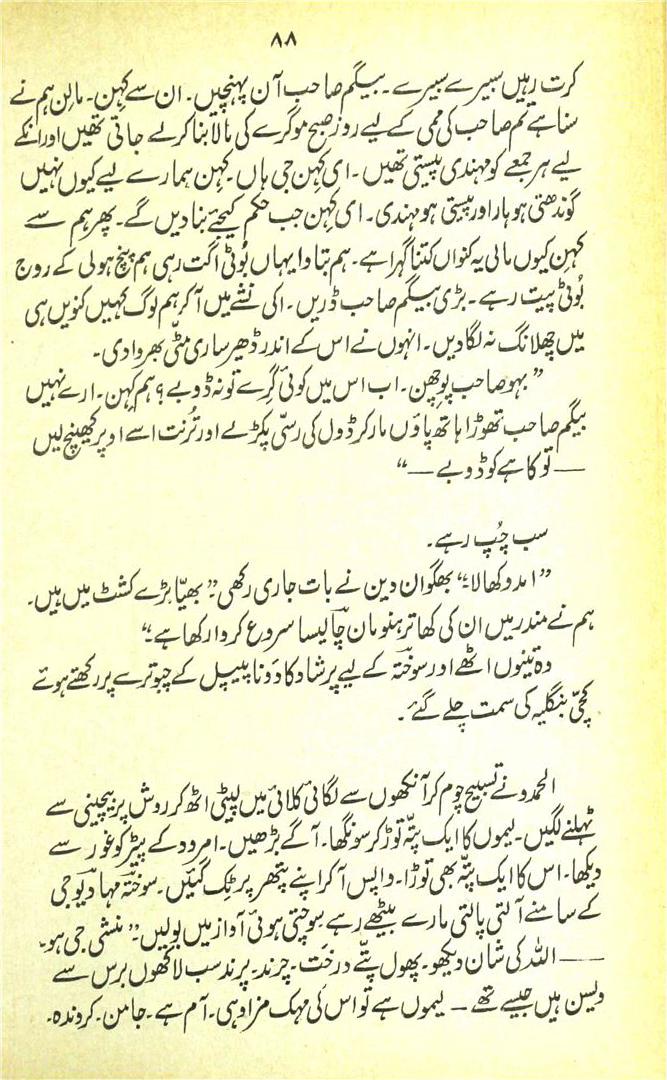 ۸۸
کرت رہیں سبیرے سبیرے۔ بیگم صاحب آن پہنچیں۔ ان سے کہن۔ مالن ہم نے
سنا ہے تم صاحب کی ممی کے لیے روز صبح موگرے کی مالا بنا کر لے جاتی تھیں اور انکے
لیے ہر جمعے کو مہندی پیستی تھیں۔ ای کہن جی ہاں۔ کہن ہمارے لیے کیوں نہیں
گوندھتی ہو ہار اور پیستی ہو مہندی۔ ای کہن جب حکم کیجئے بنا دیں گے۔ پھر ہم سے
کہن کیوں مالی یہ کنواں کتنا گہرا ہے۔ ہم بتاوا یہاں بُوٹی اگت رہی ہم پنچ ہولی کے روج
بُوٹی پیت رہے۔ بڑی بیگم صاحب ڈریں۔ اکی نشے میں آ کر ہم لوگ کہیں کنویں ہی
میں چھلانگ نہ لگا دیں۔ انہوں نے اس کے اندر ڈھیر ساری مٹّی بھروا دی۔
”بہو صاحب پوچھن۔ اب اس میں کوئی گرے تو نہ ڈوبے؟ ہم کہن۔ ارے نہیں
بیگم صاحب تھوڑا ہاتھ پاؤں مار کر ڈول کی رسّی پکڑ لے اور تُرنت اسے اوپر کھینچ لیں
— تو کاہے کو ڈوبے —“
سب چُپ رہے۔
”امدو کھالا“ بھگوان دین نے بات جاری رکھی۔ ”بھیّا بڑے کشٹ میں ہیں۔
ہم نے مندر میں ان کی کھاتر ہنومان چالیسا سروع کروا رکھا ہے“
وہ تینوں اٹھے اور سوختہ کے لیے پرشاد کا دَونا پیپل کے چبوترے پر رکھتے ہوئے
کچّی بنگلیہ کی سمت چلے گئے۔
الحمدو نے تسبیح چوم کر آنکھوں سے لگائی کلائی میں لپیٹی اٹھ کر روش پر بیچینی سے
ٹہلنے لگیں۔ لیموں کا ایک پتّہ توڑ کر سونگھا۔ آگے بڑھیں۔ امرود کے پیڑ کو غور سے
دیکھا۔ اس کا ایک پتّہ بھی توڑا۔ واپس آ کر اپنے پتھر پر ٹِک گئیں۔ سوختہ مہادیو جی
کے سامنے آلتی پالتی مارے بیٹھے رہے۔ سوچتی ہوئی آواز میں بولیں۔ ”منشی جی ہو۔
— اللہ کی شان دیکھو۔ پھول پتّے درخت۔ چرند۔ پرند سب لاکھوں برس سے
ویسن ہیں جیسے تھے — لیموں ہے تو اس کی مہک مزا وہی۔ آم ہے۔ جامن۔ کروندہ۔